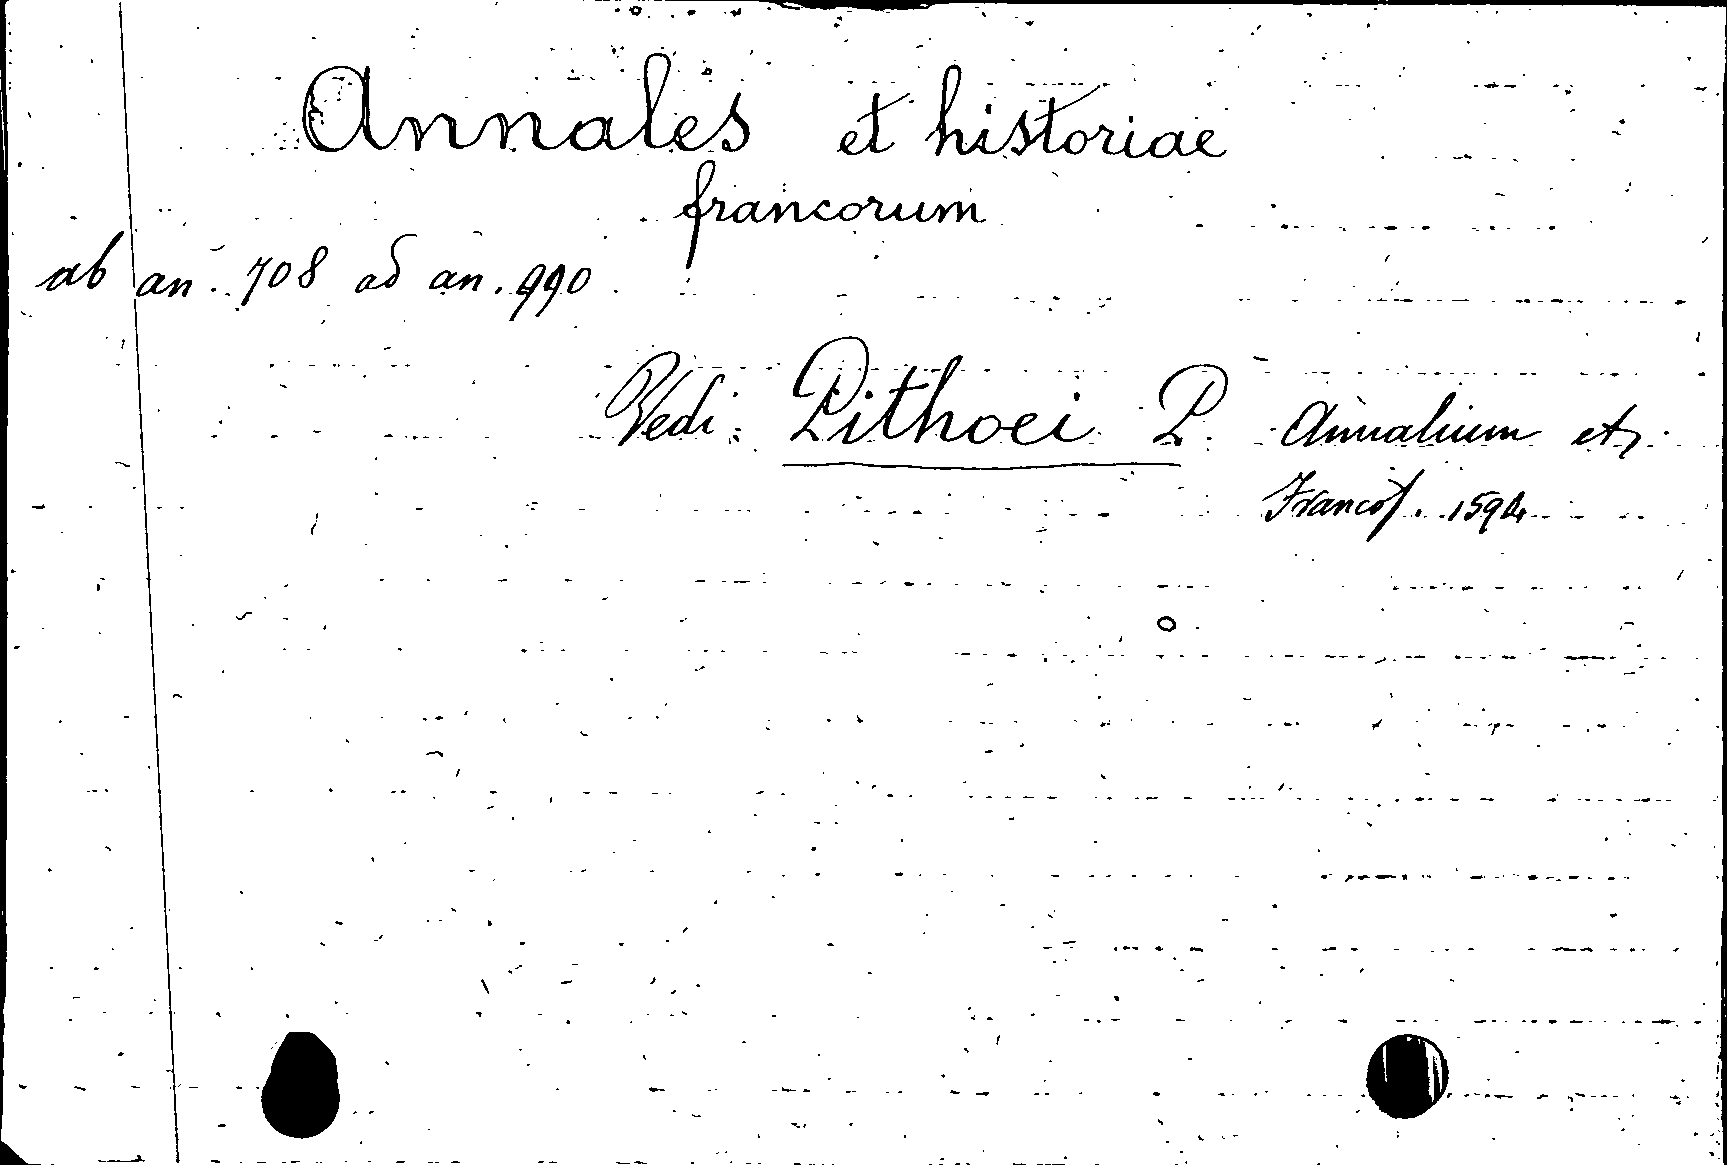 Annales et historiae
francorum
ab an. 708 ad an. 990
Vedi: Pithoei P. Annalium etc.
Francof. 1594